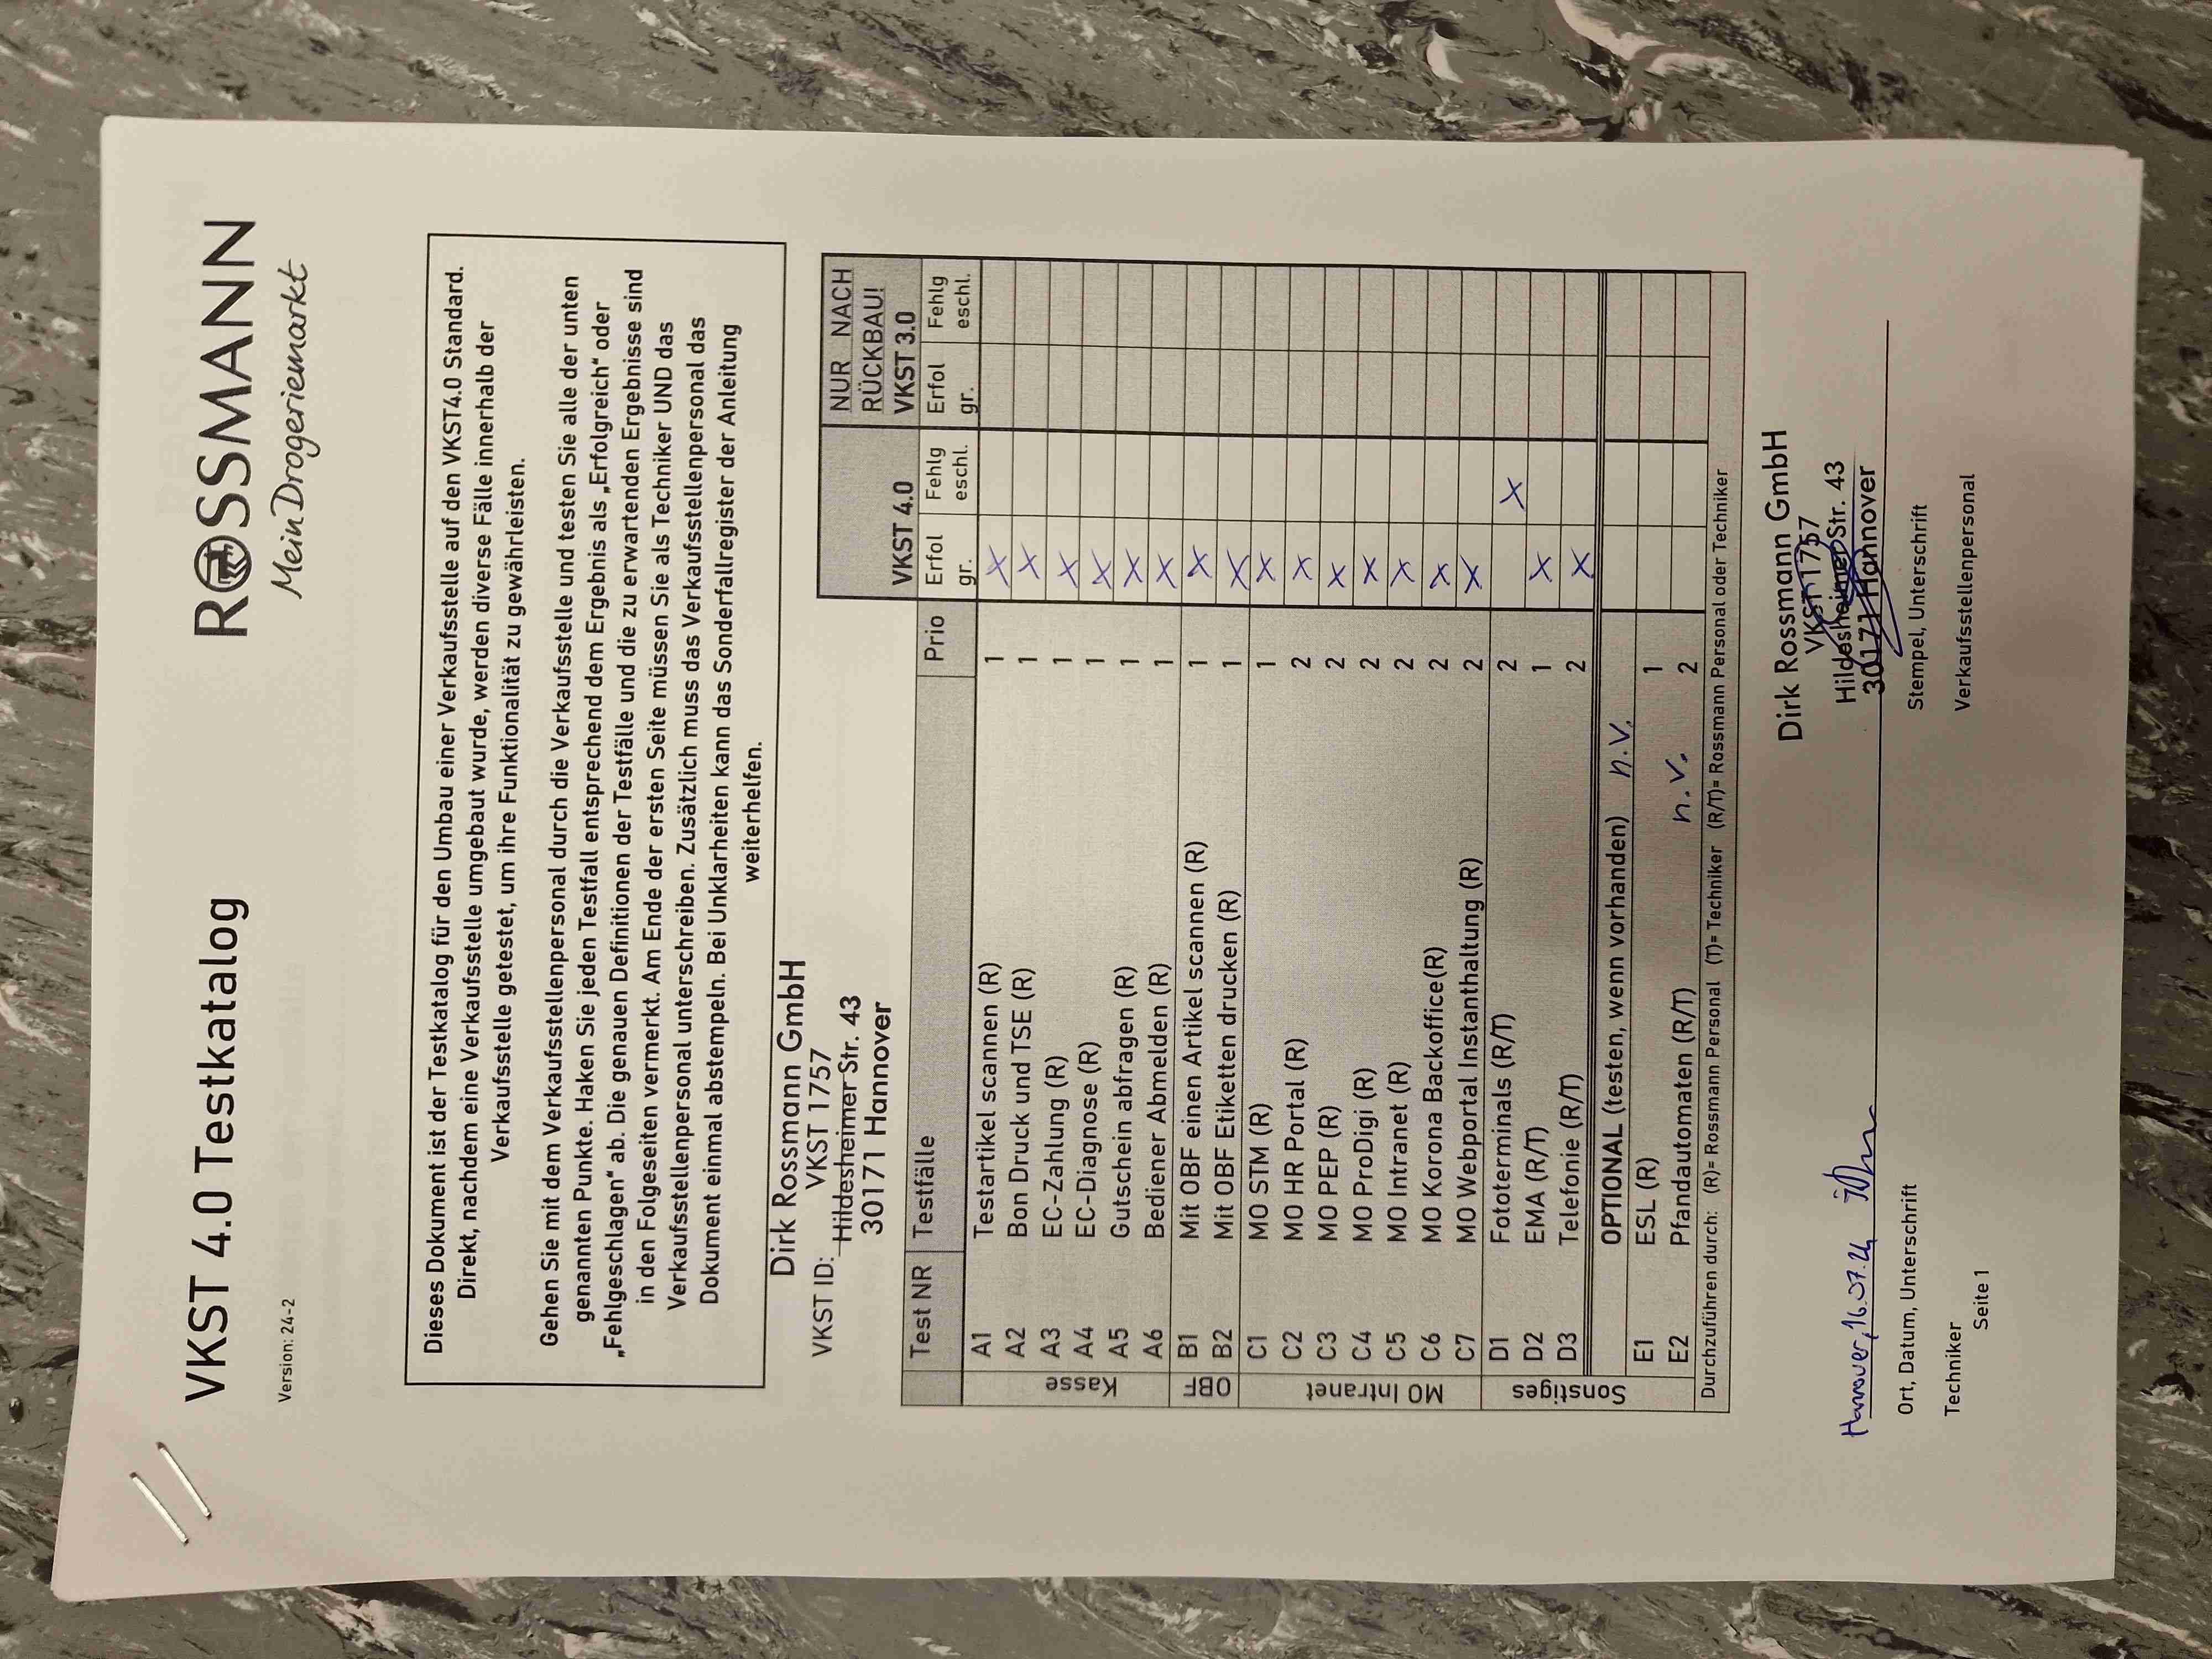 VKST 4.0 Testkatalog
ROSSMANN
Mein Drogeriemarkt
Version: 24-2
Dieses Dokument ist der Testkatalog für den Umbau einer Verkaufsstelle auf den VKST4.0 Standard.
Direkt, nachdem eine Verkaufsstelle umgebaut wurde, werden diverse Fälle innerhalb der
Verkaufsstelle getestet, um ihre Funktionalität zu gewährleisten.
Gehen Sie mit dem Verkaufsstellenpersonal durch die Verkaufsstelle und testen Sie alle der unten
genannten Punkte. Haken Sie jeden Testfall entsprechend dem Ergebnis als „Erfolgreich“ oder
„Fehlgeschlagen“ ab. Die genauen Definitionen der Testfälle und die zu erwartenden Ergebnisse sind
in den Folgeseiten vermerkt. Am Ende der ersten Seite müssen Sie als Techniker UND das
Verkaufsstellenpersonal unterschreiben. Zusätzlich muss das Verkaufsstellenpersonal das
Dokument einmal abstempeln. Bei Unklarheiten kann das Sonderfallregister der Anleitung
weiterhelfen.
Dirk Rossmann GmbH
VKST ID: VKST 1757
Hildesheimer Str. 43
30171 Hannover
NUR NACH
RÜCKBAU!
VKST 4.0 VKST 3.0
Test NR Testfälle Prio Erfol gr. Fehlg eschl. Erfol gr. Fehlg eschl.
Kasse
A1 Testartikel scannen (R) 1 X
A2 Bon Druck und TSE (R) 1 X
A3 EC-Zahlung (R) 1 X
A4 EC-Diagnose (R) 1 X
A5 Gutschein abfragen (R) 1 X
A6 Bediener Abmelden (R) 1 X
OBF
B1 Mit OBF einen Artikel scannen (R) 1 X
B2 Mit OBF Etiketten drucken (R) 1 X
MO Intranet
C1 MO STM (R) 1 X
C2 MO HR Portal (R) 2 X
C3 MO PEP (R) 2 X
C4 MO ProDigi (R) 2 X
C5 MO Intranet (R) 2 X
C6 MO Korona Backoffice(R) 2 X
C7 MO Webportal Instanthaltung (R) 2 X
Sonstiges
D1 Fototerminals (R/T) 2 X
D2 EMA (R/T) 1 X
D3 Telefonie (R/T) 2 X
OPTIONAL (testen, wenn vorhanden) n.V.
E1 ESL (R) 1
E2 Pfandautomaten (R/T) n.V. 2
Durchzuführen durch: (R)= Rossmann Personal (T)= Techniker (R/T)= Rossmann Personal oder Techniker
Dirk Rossmann GmbH
VKST 1757
Hildesheimer Str. 43
30171 Hannover
Hannover, 16.07.24
Ort, Datum, Unterschrift
Stempel, Unterschrift
Techniker
Verkaufsstellenpersonal
Seite 1